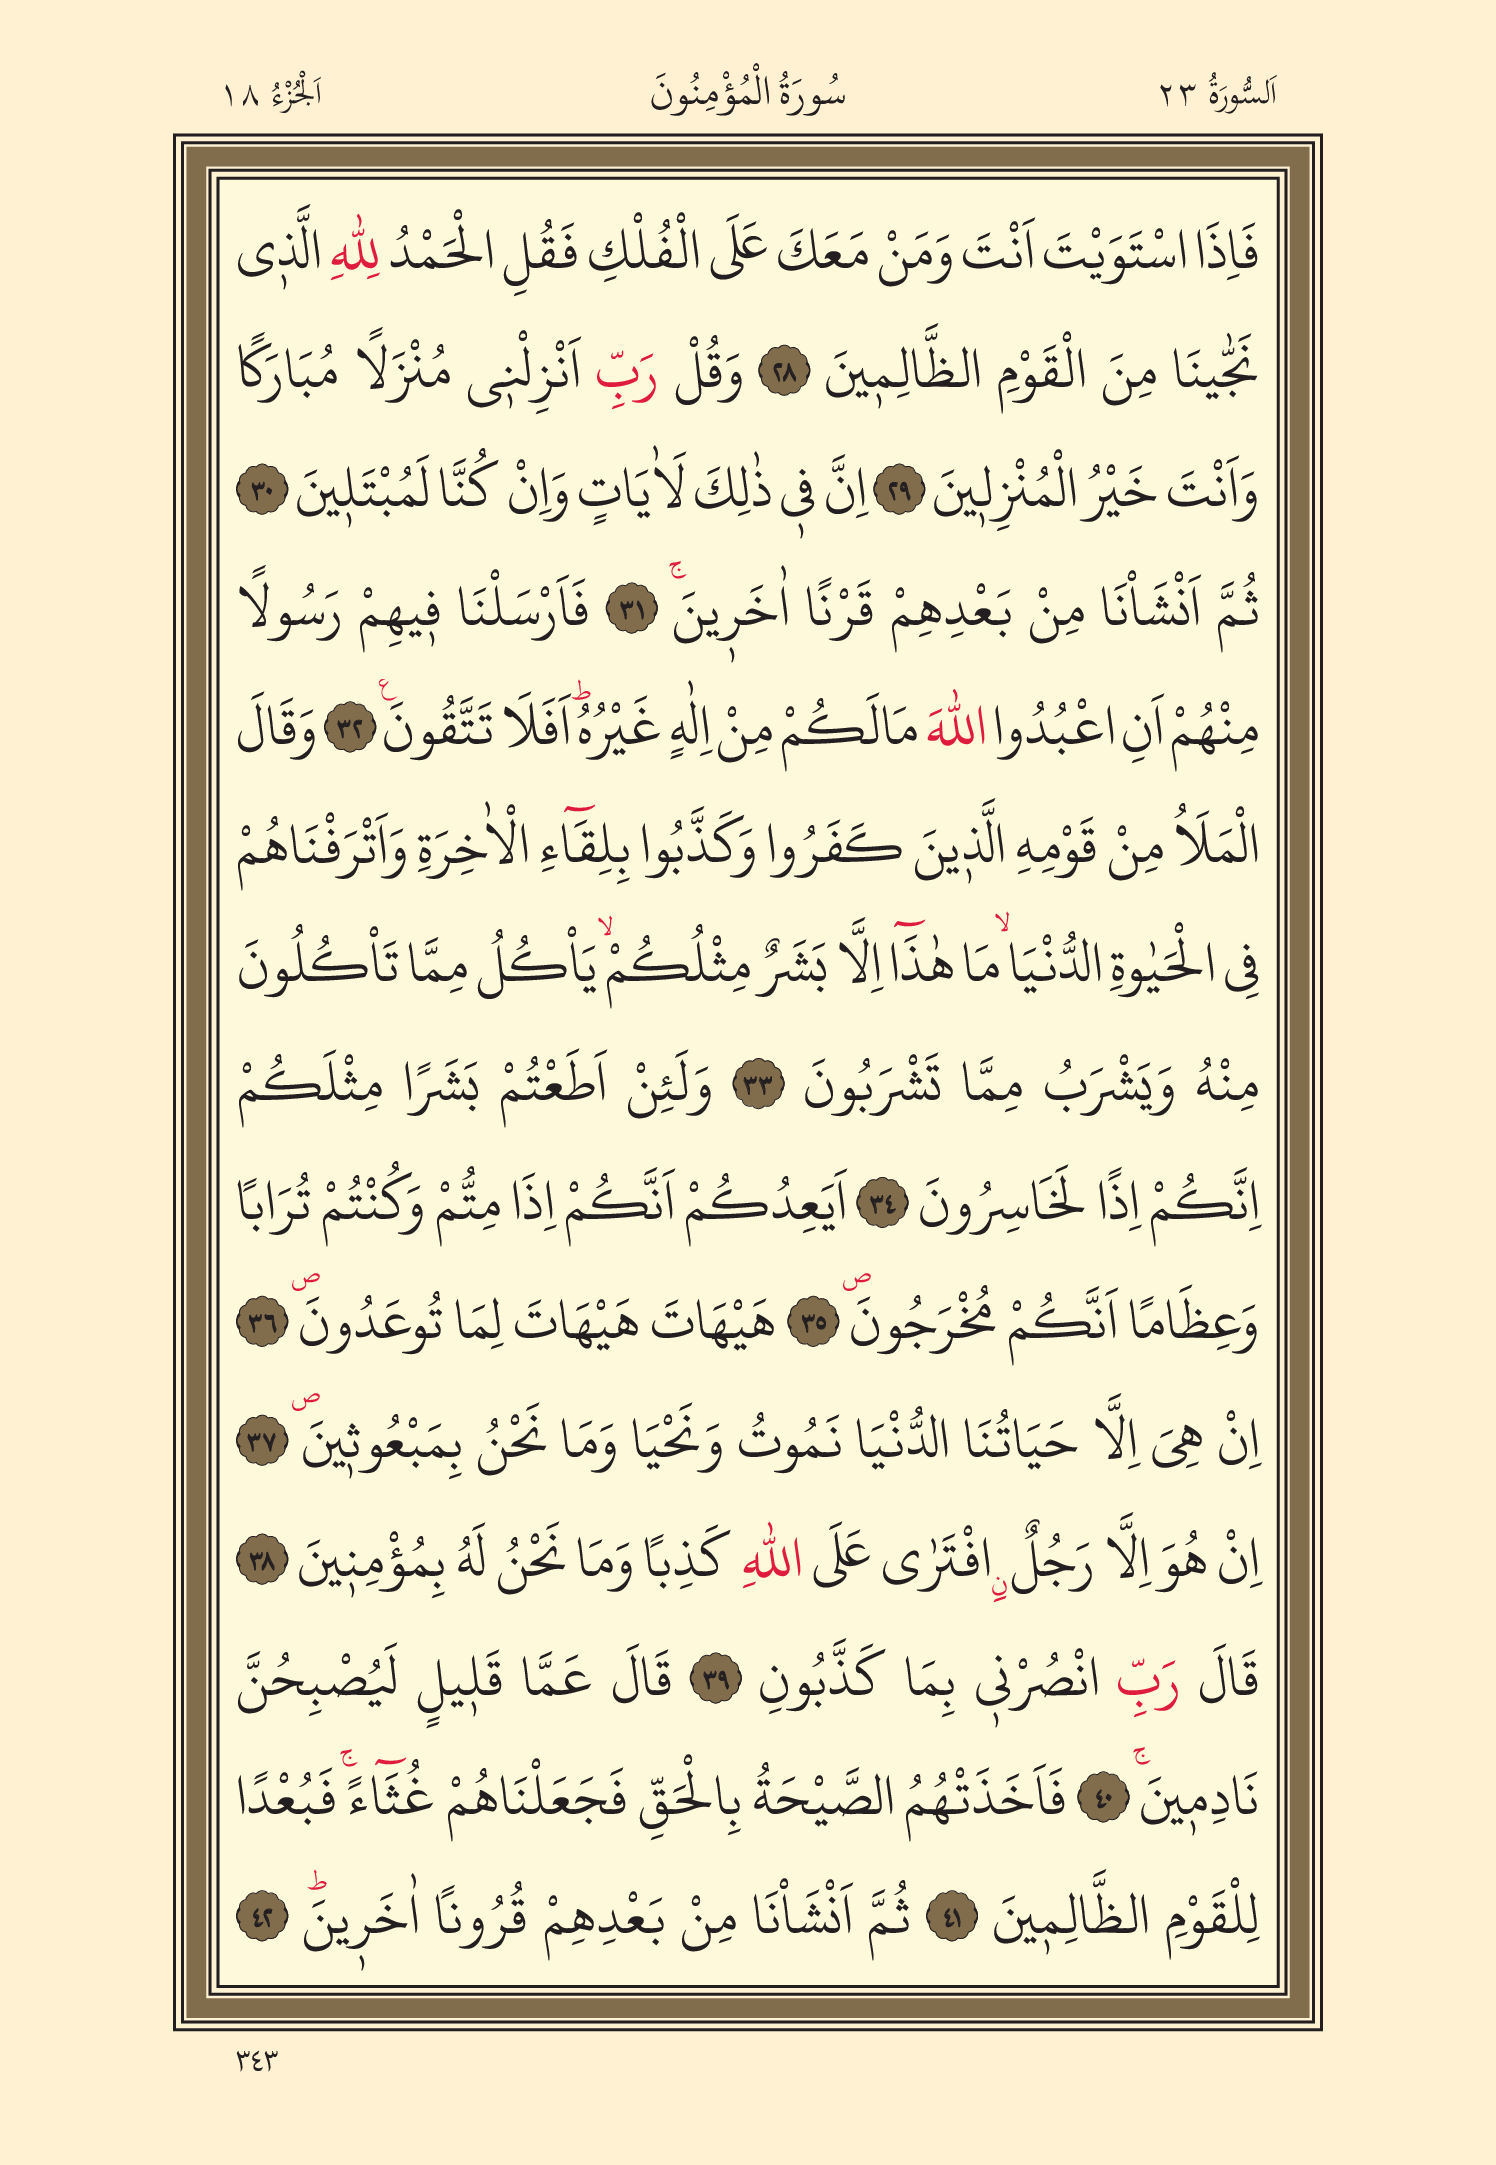 اَلسُّورَةُ ٢٣ سُورَةُ الْمُؤْمِنُونَ اَلْجُزْءُ ١٨
فَاِذَا اسْتَوَيْتَ اَنْتَ وَمَنْ مَعَكَ عَلَى الْفُلْكِ فَقُلِ الْحَمْدُ لِلّٰهِ الَّذ۪ى
نَجّٰينَا مِنَ الْقَوْمِ الظَّالِم۪ينَ ﴿٢٨﴾ وَقُلْ رَبِّ اَنْزِلْن۪ى مُنْزَلًا مُبَارَكًا
وَاَنْتَ خَيْرُ الْمُنْزِل۪ينَ ﴿٢٩﴾ اِنَّ ف۪ى ذٰلِكَ لَاٰيَاتٍ وَاِنْ كُنَّا لَمُبْتَل۪ينَ ﴿٣٠﴾
ثُمَّ اَنْشَاْنَا مِنْ بَعْدِهِمْ قَرْنًا اٰخَر۪ينَۚ ﴿٣١﴾ فَاَرْسَلْنَا ف۪يهِمْ رَسُولًا
مِنْهُمْ اَنِ اعْبُدُوا اللّٰهَ مَالَكُمْ مِنْ اِلٰهٍ غَيْرُهُۜ اَفَلَا تَتَّقُونَ۟ ﴿٣٢﴾ وَقَالَ
الْمَلَاُ مِنْ قَوْمِهِ الَّذ۪ينَ كَفَرُوا وَكَذَّبُوا بِلِقَٓاءِ الْاٰخِرَةِ وَاَتْرَفْنَاهُمْ
فِى الْحَيٰوةِ الدُّنْيَاۙ مَا هٰذَٓا اِلَّا بَشَرٌ مِثْلُكُمْۙ يَاْكُلُ مِمَّا تَاْكُلُونَ
مِنْهُ وَيَشْرَبُ مِمَّا تَشْرَبُونَ ﴿٣٣﴾ وَلَئِنْ اَطَعْتُمْ بَشَرًا مِثْلَكُمْ
اِنَّكُمْ اِذًا لَخَاسِرُونَ ﴿٣٤﴾ اَيَعِدُكُمْ اَنَّكُمْ اِذَا مِتُّمْ وَكُنْتُمْ تُرَابًا
وَعِظَامًا اَنَّكُمْ مُخْرَجُونَۖ ﴿٣٥﴾ هَيْهَاتَ هَيْهَاتَ لِمَا تُوعَدُونَۖ ﴿٣٦﴾
اِنْ هِىَ اِلَّا حَيَاتُنَا الدُّنْيَا نَمُوتُ وَنَحْيَا وَمَا نَحْنُ بِمَبْعُوث۪ينَۖ ﴿٣٧﴾
اِنْ هُوَ اِلَّا رَجُلٌ نِ افْتَرٰى عَلَى اللّٰهِ كَذِبًا وَمَا نَحْنُ لَهُ بِمُؤْمِن۪ينَ ﴿٣٨﴾
قَالَ رَبِّ انْصُرْن۪ى بِمَا كَذَّبُونِ ﴿٣٩﴾ قَالَ عَمَّا قَل۪يلٍ لَيُصْبِحُنَّ
نَادِم۪ينَۚ ﴿٤٠﴾ فَاَخَذَتْهُمُ الصَّيْحَةُ بِالْحَقِّ فَجَعَلْنَاهُمْ غُثَٓاءًۚ فَبُعْدًا
لِلْقَوْمِ الظَّالِم۪ينَ ﴿٤١﴾ ثُمَّ اَنْشَاْنَا مِنْ بَعْدِهِمْ قُرُونًا اٰخَر۪ينَۜ ﴿٤٢﴾
٣٤٣